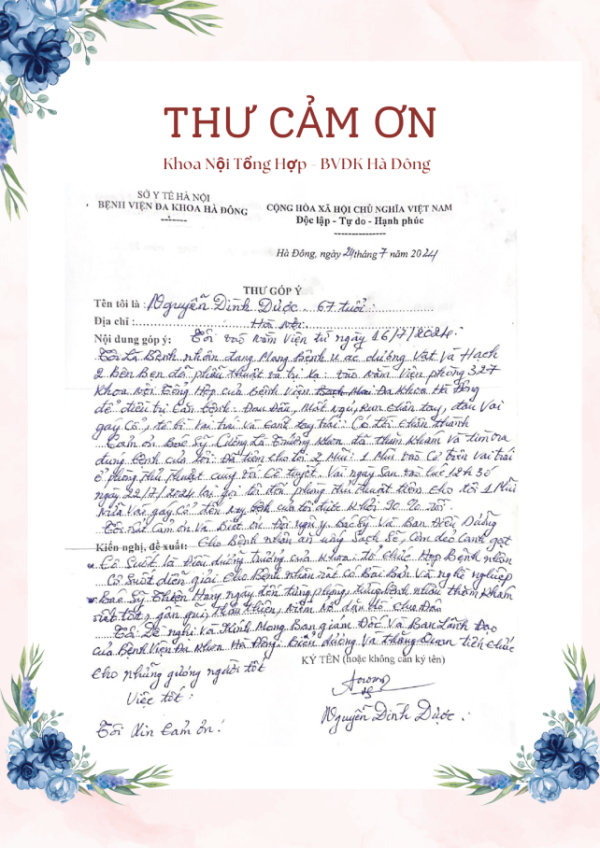 THƯ CẢM ƠN
Khoa Nội Tổng Hợp - BVĐK Hà Đông
SỞ Y TẾ HÀ NỘI
BỆNH VIỆN ĐA KHOA HÀ ĐÔNG
CỘNG HÒA XÃ HỘI CHỦ NGHĨA VIỆT NAM
Độc lập - Tự do - Hạnh phúc
Hà Đông, ngày 24 tháng 7 năm 2024
THƯ GÓP Ý
Tên tôi là: Nguyễn Đình Được. 67 tuổi
Địa chỉ: Hà Nội
Nội dung góp ý: Tôi vào nằm viện từ ngày 16/7/2024.
Tôi là Bệnh nhân đang Mang Bệnh u ác dương Vật Và Hạch
2 Bên Bẹn đã phẫu thuật và xạ. vào nằm Viện phòng 327
Khoa Nội Tổng Hợp của Bệnh Viện Bạch Mai Đa Khoa Hà Đông
để điều trị Căn Bệnh: Đau Đầu, Mất Ngủ, Run chân tay, đau Vai
gáy Cổ, tê bì Vai trái Và Cánh tay trái: Có
Cảm ơn Bác Sỹ Cường là Trưởng Khoa đã thăm Khám Và tìm ra
đúng Bệnh của tôi: Đã tiêm cho tôi 2 Mũi: 1 Mũi vào Cơ trên vai trái
ở phòng thủ thuật cùng với Cô Tuyết. Vài ngày Sau vào lúc 12h 30
ngày 22/7/2024 lại gọi tôi lên phòng thủ thuật tiêm cho tôi 1 Mũi
nữa Vào gáy Cổ đến nay Bệnh của tôi được Khỏi
Tôi rất Cảm ơn Và Biết ơn. Đội ngũ y, Bác Sỹ Và Ban Điều Dưỡng
Kiến nghị, đề xuất: Cho Bệnh nhân ăn uống Sạch Sẽ, Cơm dẻo canh ngọt
Cô Suốt là Điều dưỡng trưởng của Khoa tổ chức Họp Bệnh nhân
Cô Suốt diễn giải Cho Bệnh nhân rất có Bài Bản Và nghề nghiệp
Bác Sỹ Thiện Hàng ngày đến từng phòng, Bệnh nhân thăm Khám
rất tốt, gần gũi, Thân thiện, niềm nở dặn dò Chu Đáo
Tôi Đề nghị Và Kính Mong Ban giám Đốc Và Ban Lãnh Đạo
của Bệnh Viện Đa Khoa Hà Đông. Biểu dương Và
cho những gương người tốt
Việc tốt:
KÝ TÊN (hoặc không cần ký tên)
Tôi Xin Cảm ơn!
Nguyễn Đình Được.